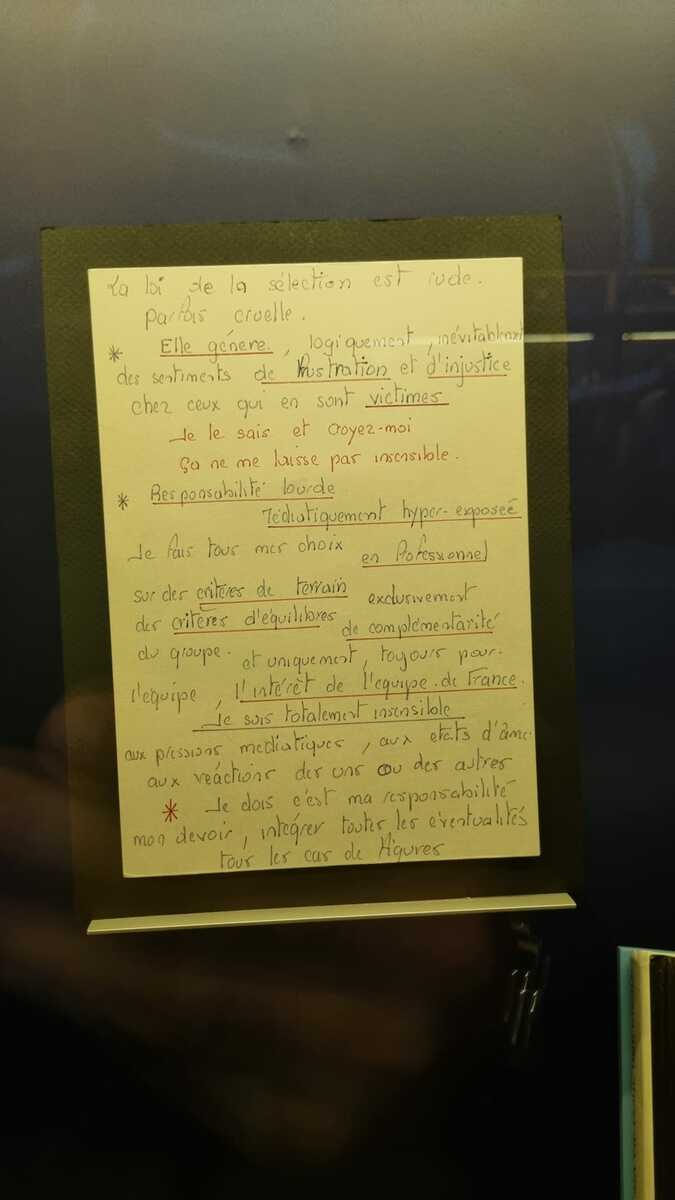 La loi de la sélection est rude.
parfois cruelle.
* Elle génere, logiquement, inévitablement
des sentiments de frustration et d'injustice
chez ceux qui en sont victimes
Je le sais et croyez-moi
Ça ne me laisse pas insensible.
* Responsabilité lourde
Médiatiquement hyper-exposée
Je fais tous mes choix en Professionnel
sur des critères de terrain exclusivement
des critères d'équilibres de complémentarité
du groupe. et uniquement, toujours pour
l'equipe, l'intérêt de l'equipe de France.
Je suis totalement insensible
aux pressions mediatiques, aux etats d'âme
aux réactions des uns ou des autres
* Je dois c'est ma responsabilité
mon devoir, intégrer toutes les éventualités
tous les cas de figures